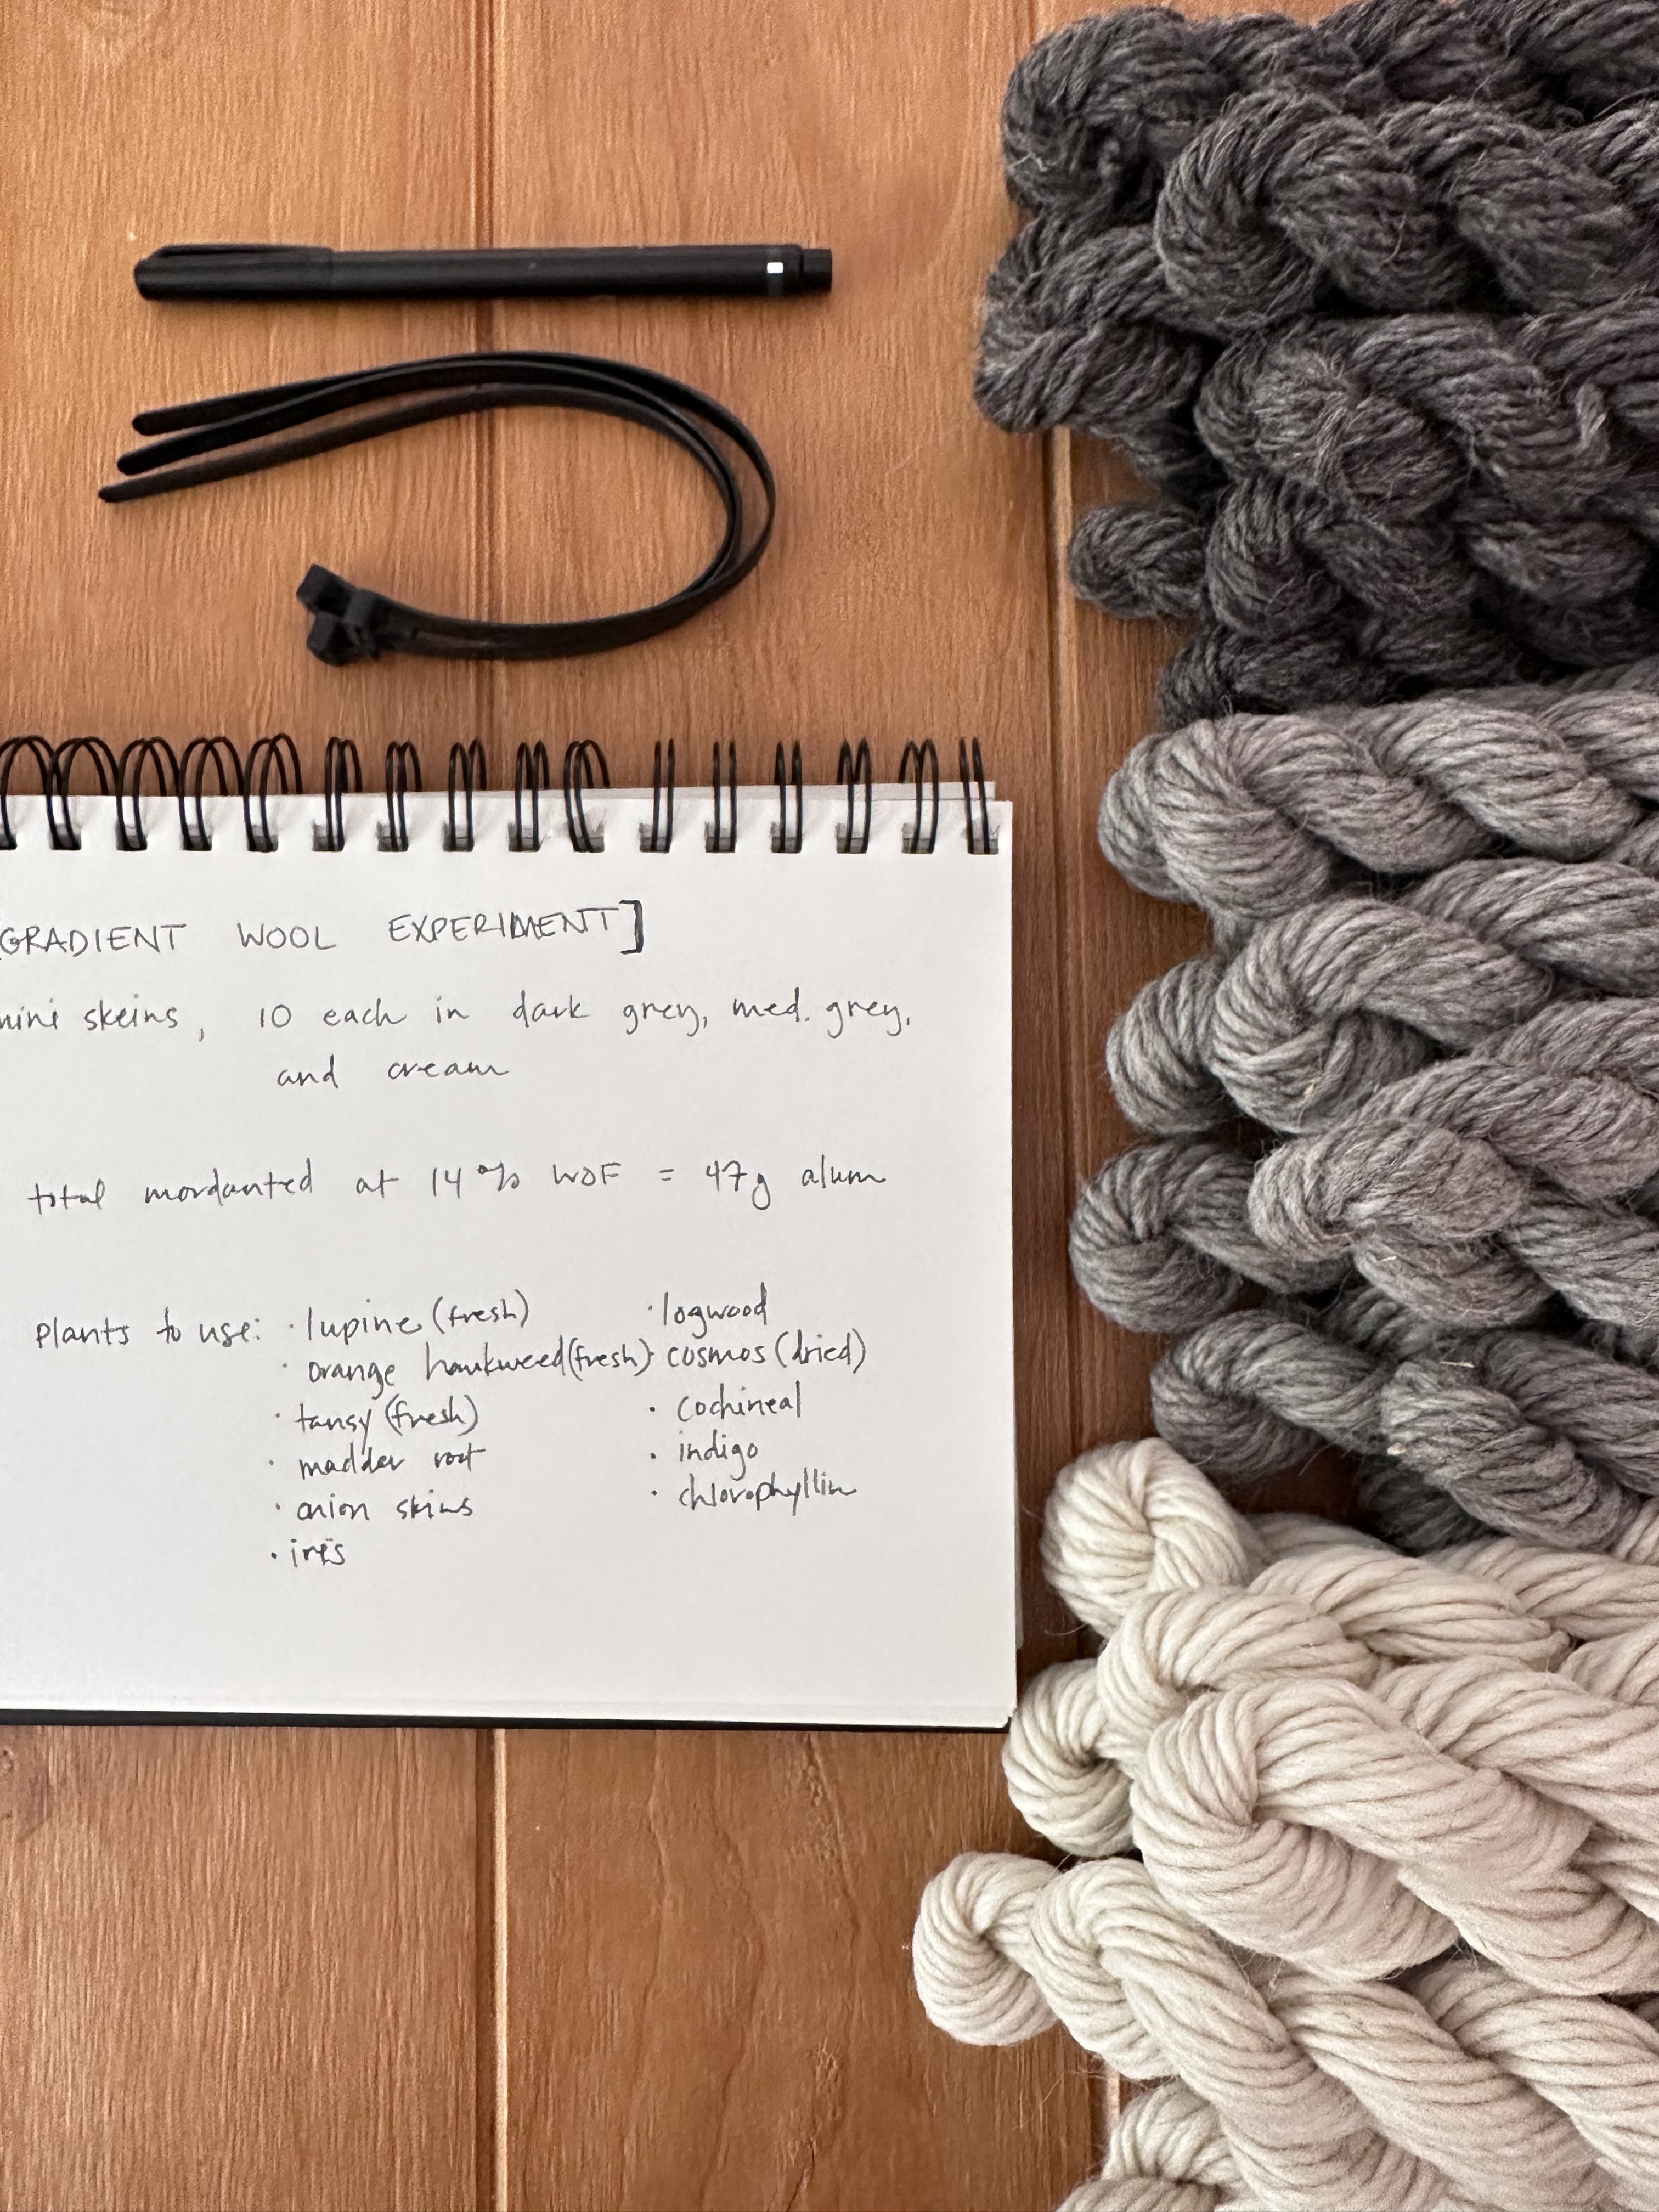 [GRADIENT WOOL EXPERIMENT]
mini skeins, 10 each in dark grey, med. grey,
and cream
total mordanted at 14% WOF = 47g alum
plants to use: · lupine (fresh) · logwood
· orange hawkweed (fresh) · cosmos (dried)
· tansy (fresh) · cochineal
· madder root · indigo
· onion skins · chlorophyllin
· iris